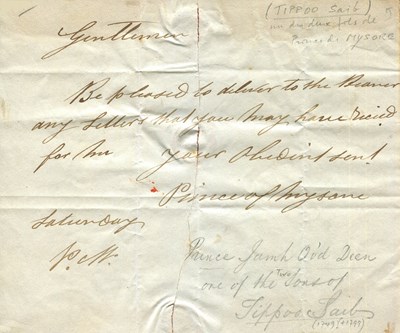 (TIPPOO Saib)
un des deux fils de
Prince de MYSORE
Gentlemen
Be pleased to deliver to the Bearer
any Letters that you may have recied
for me your Obedint sert
Prince of Mysore
Saturday
P. M.
Prince Jamh Od'd Deen
one of the Two Sons of
Tippoo Saib
(1749/1799)